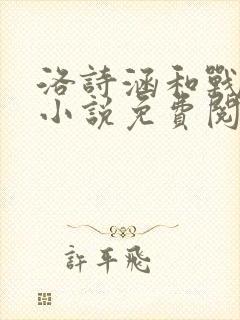 洛詩涵和戰
小說免費閱
許平飛